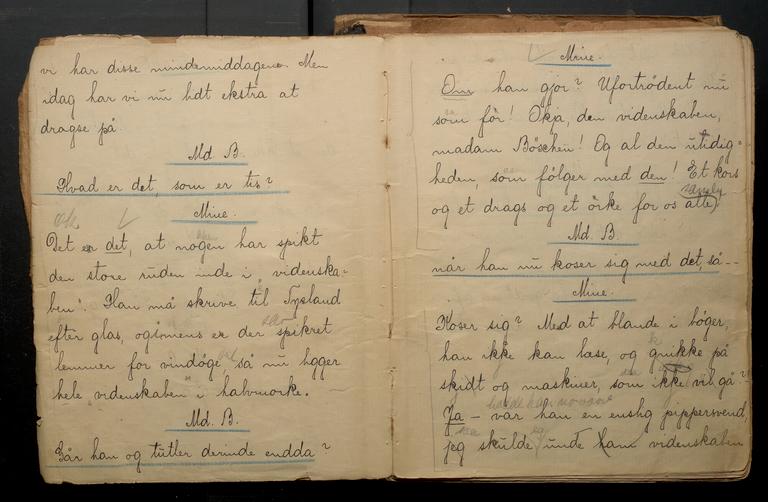 vi har disse mindemiddagene. Men
idag har vi nu lidt ekstra at
dragse på.
Md. B.
Hvad er det, som er tis?
Mine.
Det er det, at nogen har spikt
den store ruden inde i „videnska-
ben". Han må skrive til Tysland
efter glas, ogimens er der spikret
lemmer for vindöge, så nu ligger
hele „videnskaben" i halvmörke.
Md. B.
Går han og tutler derinde endda?
Mine.
Om han gjor? Ufortrödent nu
som för! Okja, den videnskaben,
madam Böschen! Og al den utidig-
heden, som fölger med den! Et kors
og et drags og et örke for os alle)
Md. B.
når han nu koser sig med det, så--
Mine.
Koser sig? Med at blande i böger,
han ikke kan læse, og gnikke på
skidt og maskiner, som ikke vil gå?!
Ja - var han en enslig pippersvend,
jeg skulde unde ham videnskaben